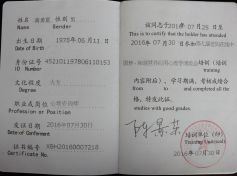 姓名 性别 男
Name Gender
出生日期 1978年06月11日
Date of Birth
身份证号 452101197806110153
ID Number
文化程度 大专
Degree
职业或岗位 心理咨询师
Profession or Position
发证日期 2016年07月30日
Date of Conferment
证书编号 XBH20160007218
Certificate No.
该同志于2016年07月25日至
This is to certify that the holder has attended
2016年07月30日参加
培训(培训
training
内容附后),学习期满,考试成绩合
from to and completed all the
格,特发此证。
studies with qualified marks.
培训单位(印)
Training Unit(seal)
2016年07月30日